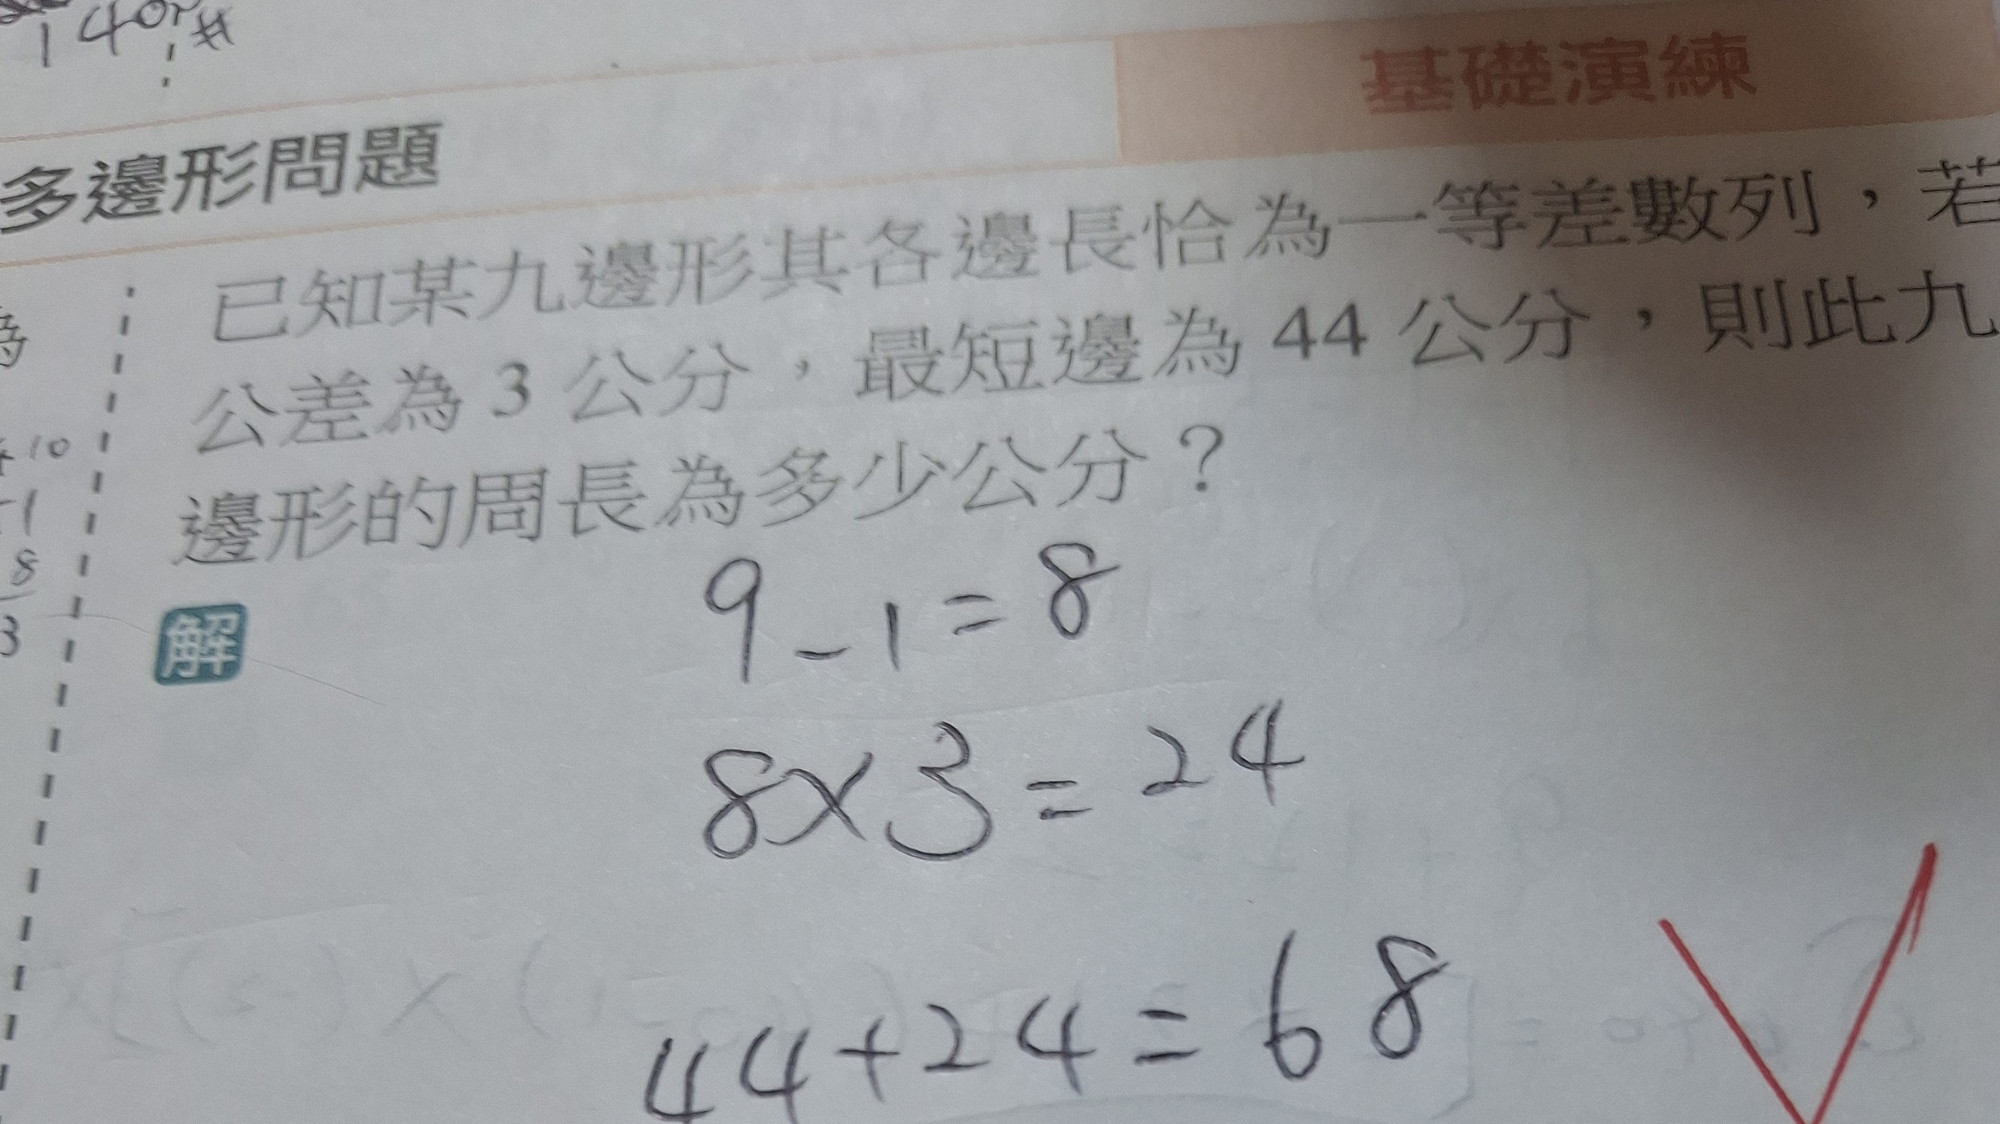 140 #
基礎演練
多邊形問題
已知某九邊形其各邊長恰為一等差數列，若
公差為 3 公分，最短邊為 44 公分，則此九
邊形的周長為多少公分？
解
9-1=8
8×3=24
44+24=68
為
10
-1
8
3